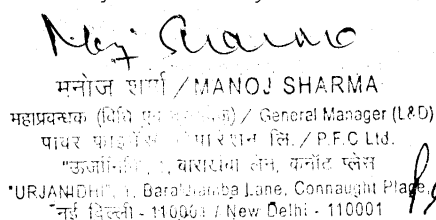 Manoj Sharma
मनोज शर्मा / MANOJ SHARMA
महाप्रबन्धक (विधि एवं) / General Manager (L&D)
पावर फाइनेंस कॉर्पोरेशन लि. / P.F.C Ltd.
"ऊर्जानिधि", 1, बाराखंबा लेन, कनॉट प्लेस
"URJANIDHI", 1, Barakhamba Lane, Connaught Place,
नई दिल्ली - 110001 / New Delhi - 110001